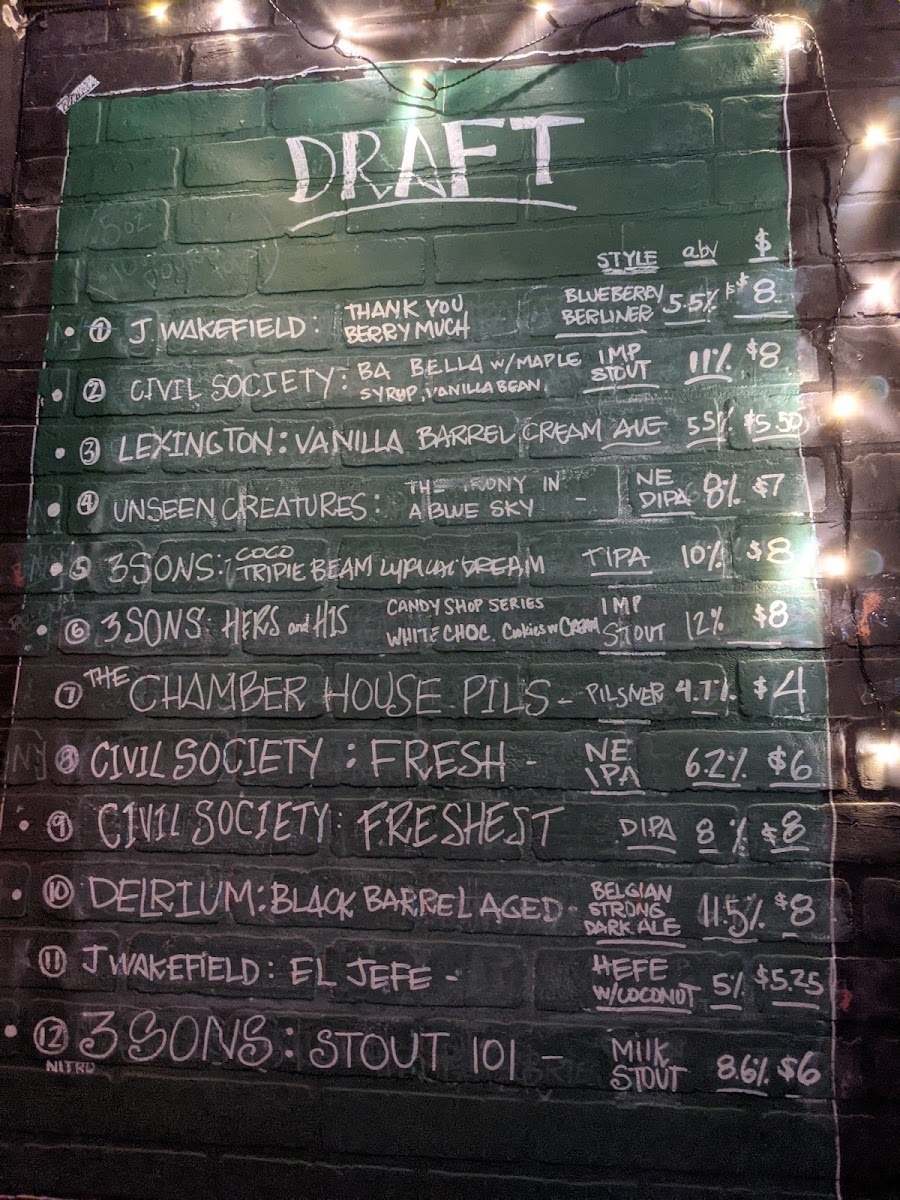 DRAFT
STYLE abv $
1 J. WAKEFIELD: THANK YOU BERRY MUCH BLUEBERRY BERLINER 5.5% $8
2 CIVIL SOCIETY: BA BELLA W/MAPLE SYRUP, VANILLA BEAN. IMP STOUT 11% $8
3 LEXINGTON: VANILLA BARREL CREAM ALE 5.5% $5.50
4 UNSEEN CREATURES: THE IRONY IN A BLUE SKY - NE DIPA 8% $7
5 3SONS: COCO TRIPLE BEAM LYRICAL DREAM TIPA 10% $8
6 3SONS: HERS and HIS CANDY SHOP SERIES WHITE CHOC. Cookies w CREAM IMP STOUT 12% $8
7 THE CHAMBER HOUSE PILS - PILSNER 4.7% $4
8 CIVIL SOCIETY : FRESH - NE IPA 6.2% $6
9 CIVIL SOCIETY: FRESHEST DIPA 8% $8
10 DELRIUM: BLACK BARREL AGED - BELGIAN STRONG DARK ALE 11.5% $8
11 J WAKEFIELD: EL JEFE - HEFE W/COCONUT 5% $5.25
12 3 SONS: STOUT 101 - MILK STOUT 8.6% $6
NITRO